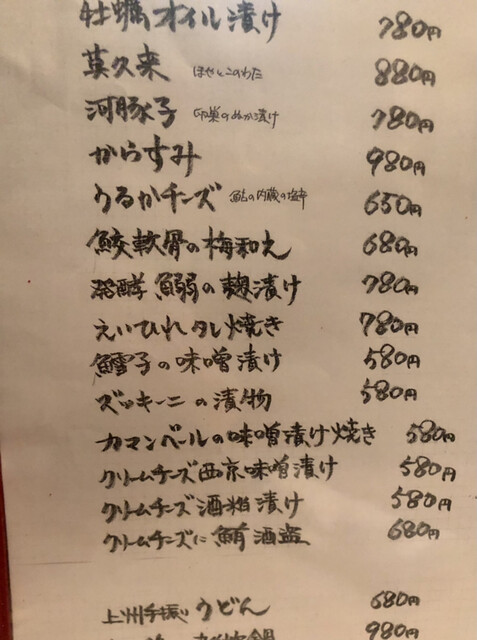 牡蠣オイル漬け 780円
莫久来 ほやとこのわた 880円
河豚子 卵巣のぬか漬け 780円
からすみ 980円
うるかチーズ 鮎の内蔵の塩辛 650円
鮫軟骨の梅和え 680円
発酵鰯の麹漬け 780円
えいひれタレ焼き 780円
鱈子の味噌漬け 580円
ズッキーニの漬物 580円
カマンベールの味噌漬け焼き 580円
クリームチーズ西京味噌漬け 580円
クリームチーズ酒粕漬け 580円
クリームチーズに鮪酒盗 680円
上州手振りうどん 680円
980円